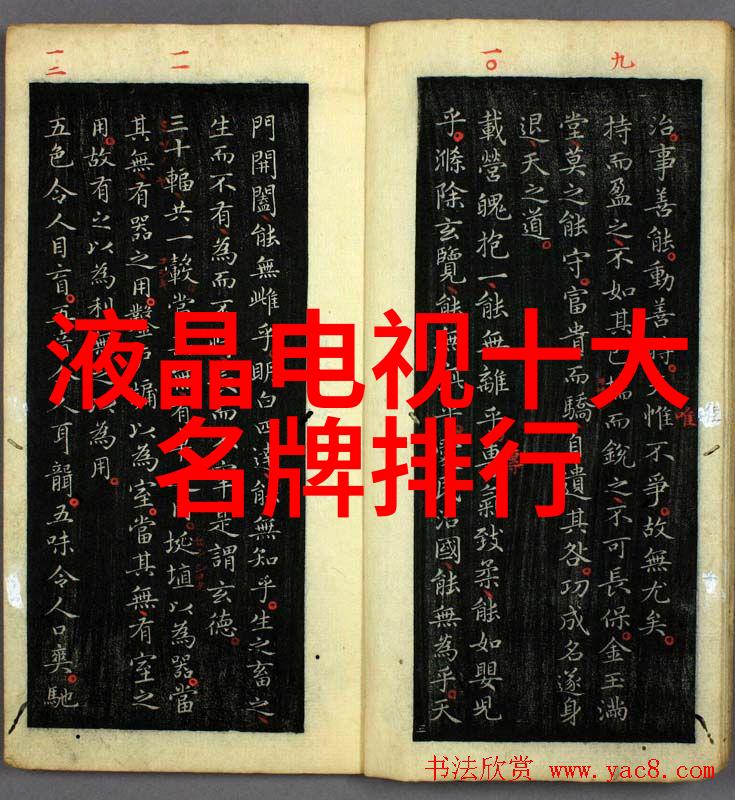 九
一〇
一一
一二
治事善能動善惟不爭故無尤矣
唯
持而盈之不如其已揣而銳之不可長保金玉滿
堂莫之能守富貴而驕自遺其咎功成名遂身
退天之道
載營魄抱一能無離乎專氣致柔能如嬰児
乎滌除玄覽能無乎民治國能無為乎天
門開闔能無雌乎明白四達能無知乎生之畜之
生而不有為而不而不宰是謂玄德
三十輻共一轂當無有用埏埴以為器當
其無有器之用鑿戶牖以為室當其無有室之
用故有之以為利無之以為用
五色令人目盲五音令人耳聾五味令人口爽馳
液晶电视十大
名牌排行
书法欣赏 www.yac8.com